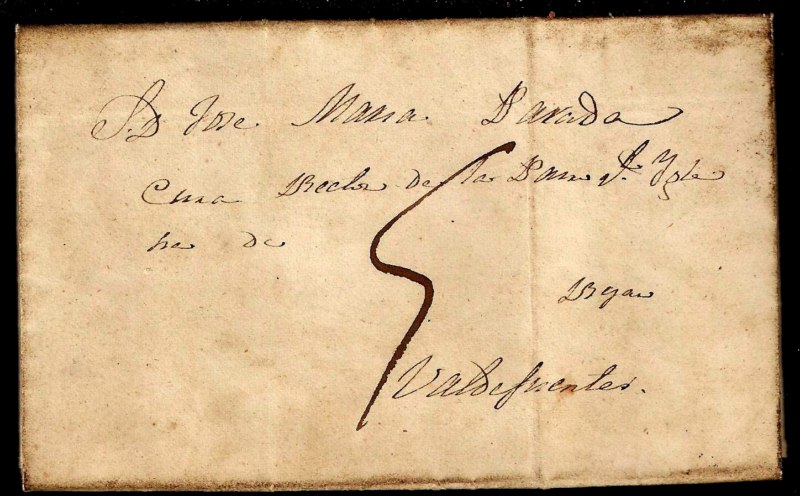 S. D Jose Maria Parada
Cura Rector de la Parr.l Ygle
sia de
Valdefuentes.
5